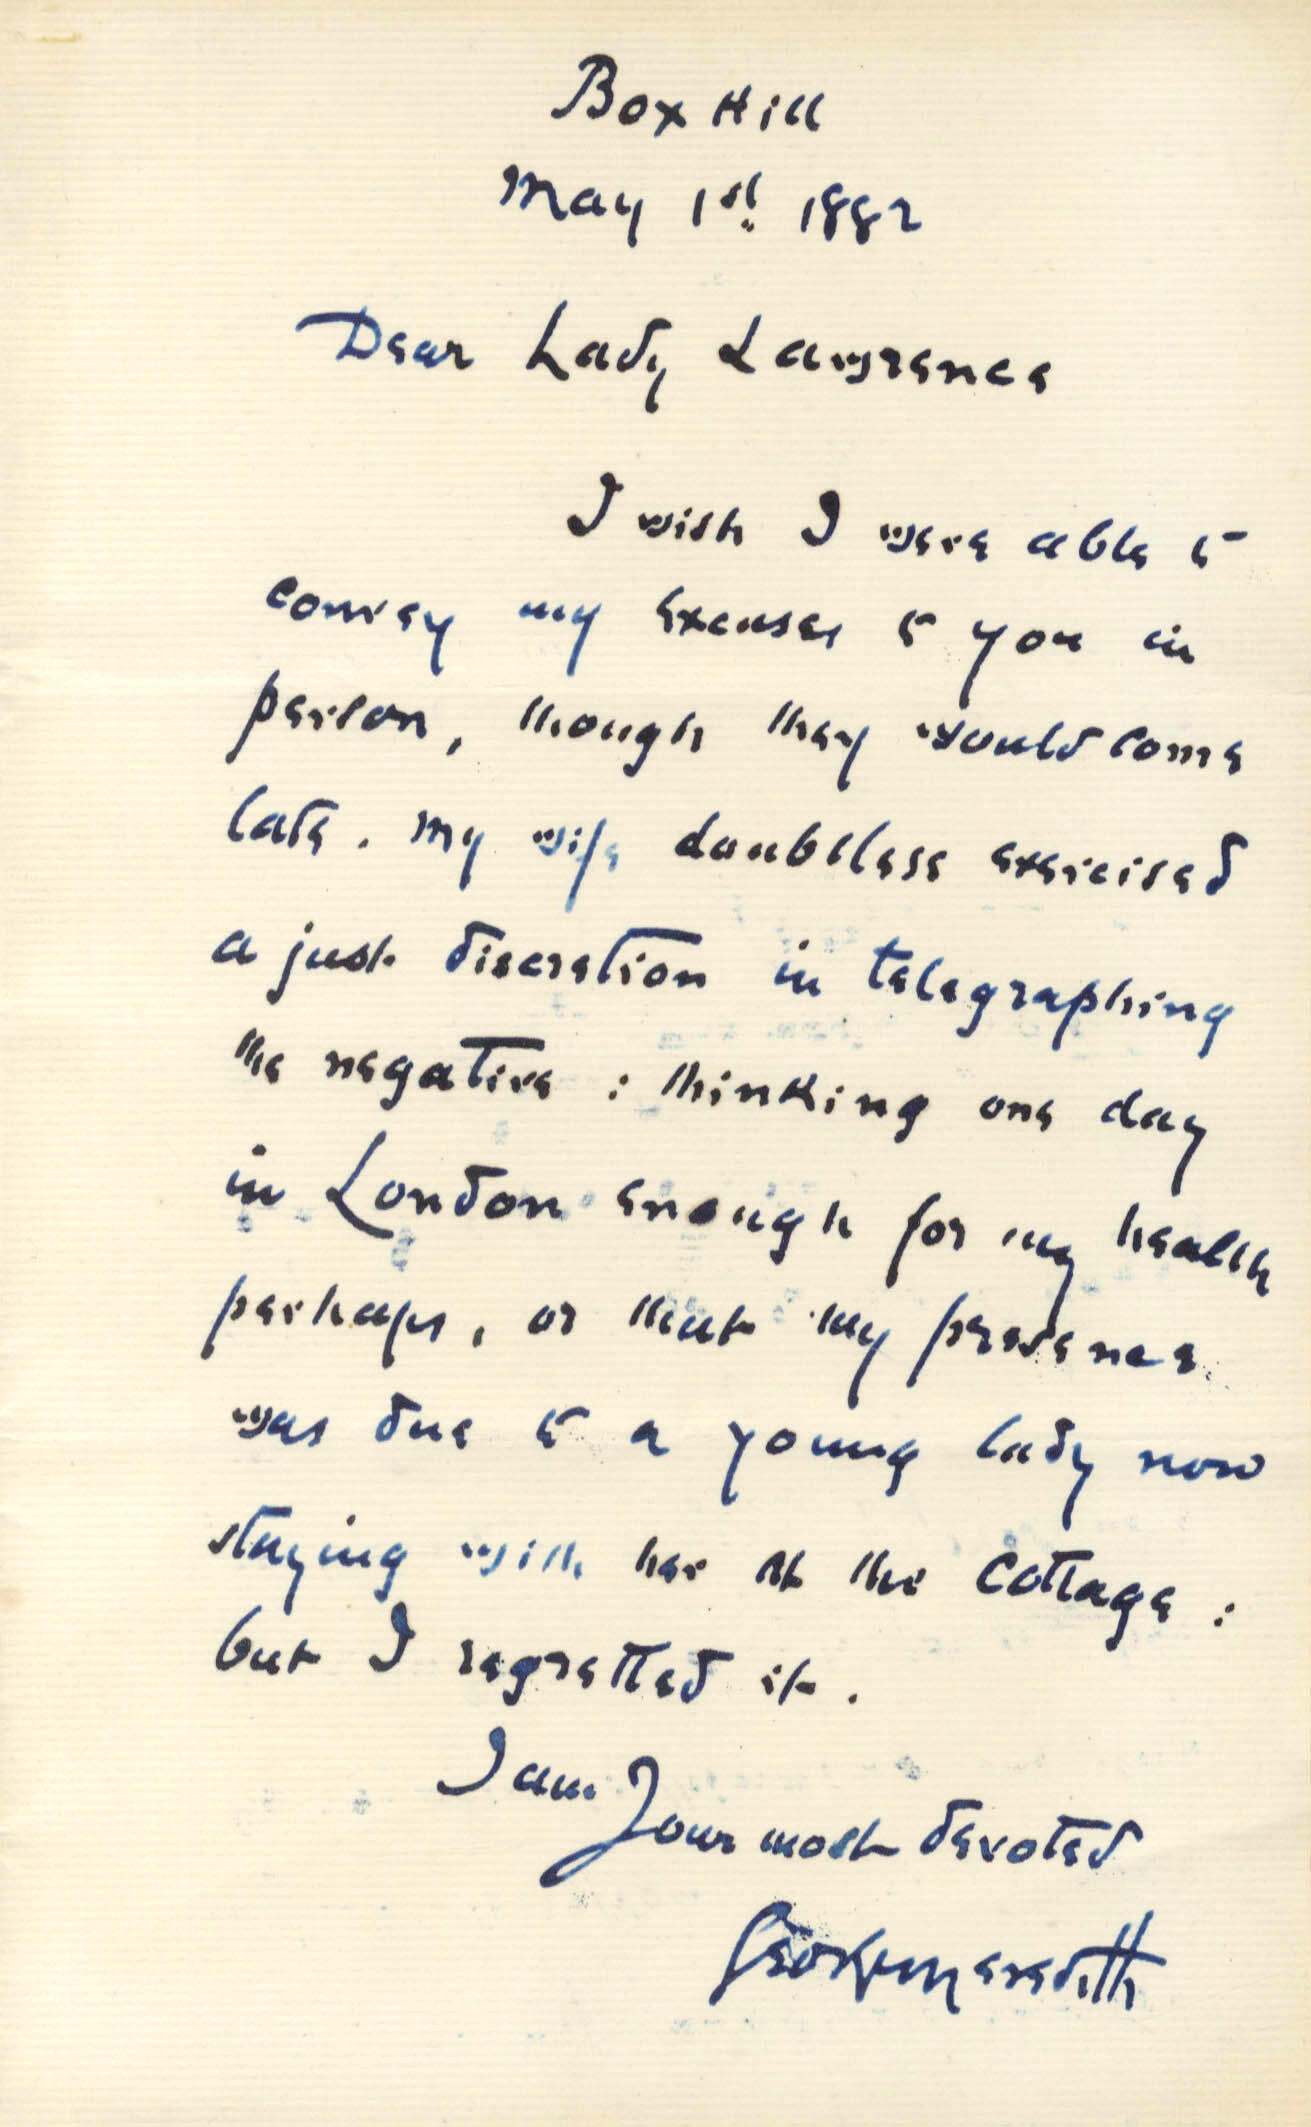 Box Hill
May 1st. 1882
Dear Lady Lawrence
I wish I were able to
convey my excuses to you in
person, though they would come
late. My wife doubtless exercised
a just discretion in telegraphing
the negative: thinking one day
in London enough for my health
perhaps, or that my presence
was due to a young lady now
staying with her at the Cottage:
but I regretted it.
I am
Your most devoted
George Meredith